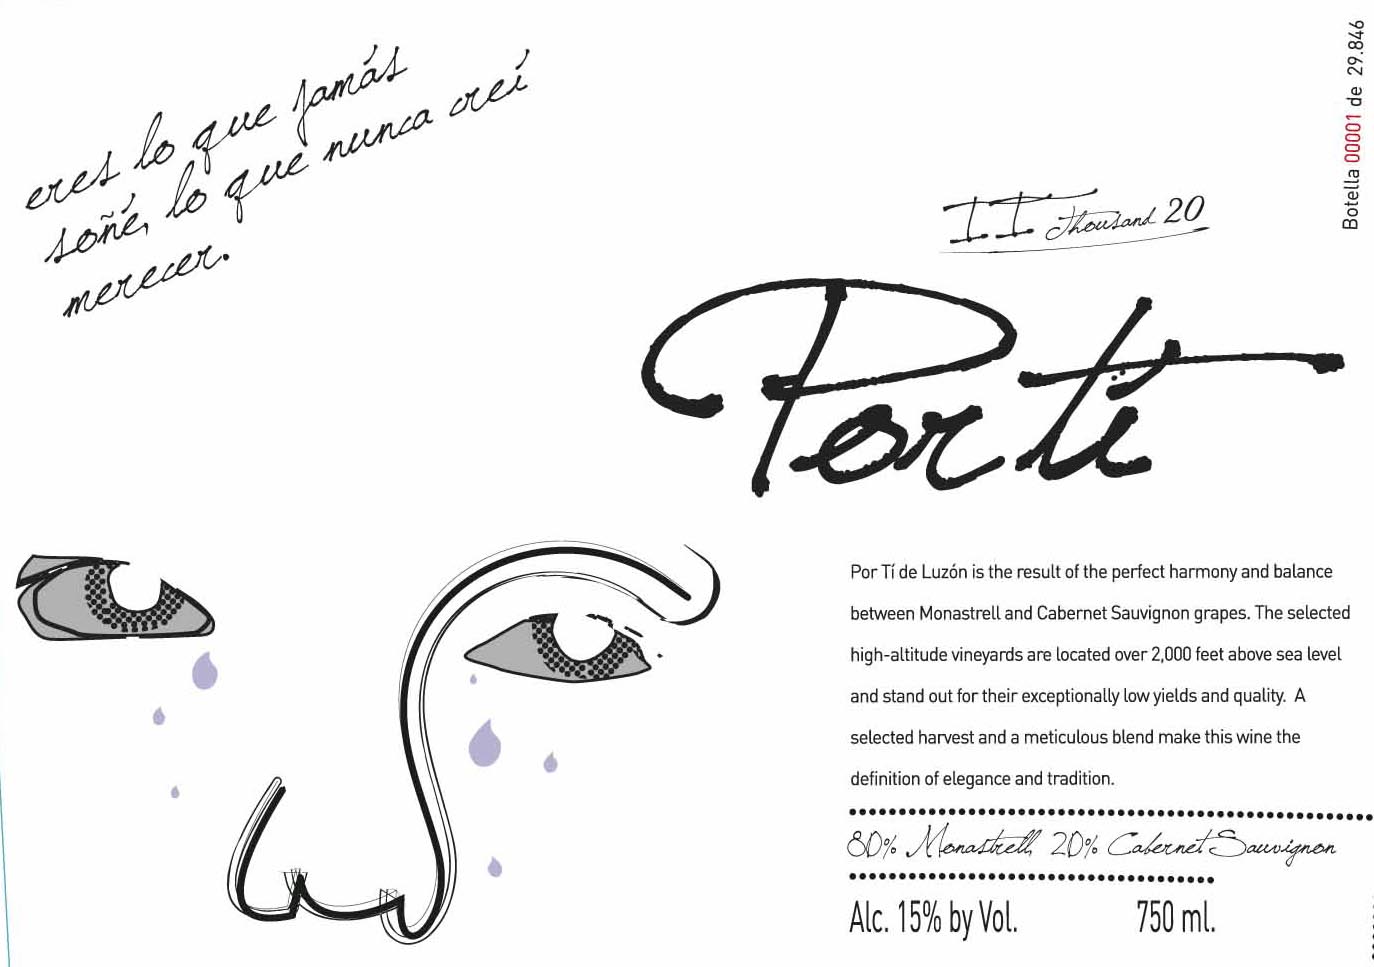 eres lo que jamás
soñé, lo que nunca creí
merecer.
Botella 00001 de 29.846
II Thousand 20
Por tí
Por Tí de Luzón is the result of the perfect harmony and balance
between Monastrell and Cabernet Sauvignon grapes. The selected
high-altitude vineyards are located over 2,000 feet above sea level
and stand out for their exceptionally low yields and quality. A
selected harvest and a meticulous blend make this wine the
definition of elegance and tradition.
80% Monastrell, 20% Cabernet Sauvignon
Alc. 15% by Vol. 750 ml.